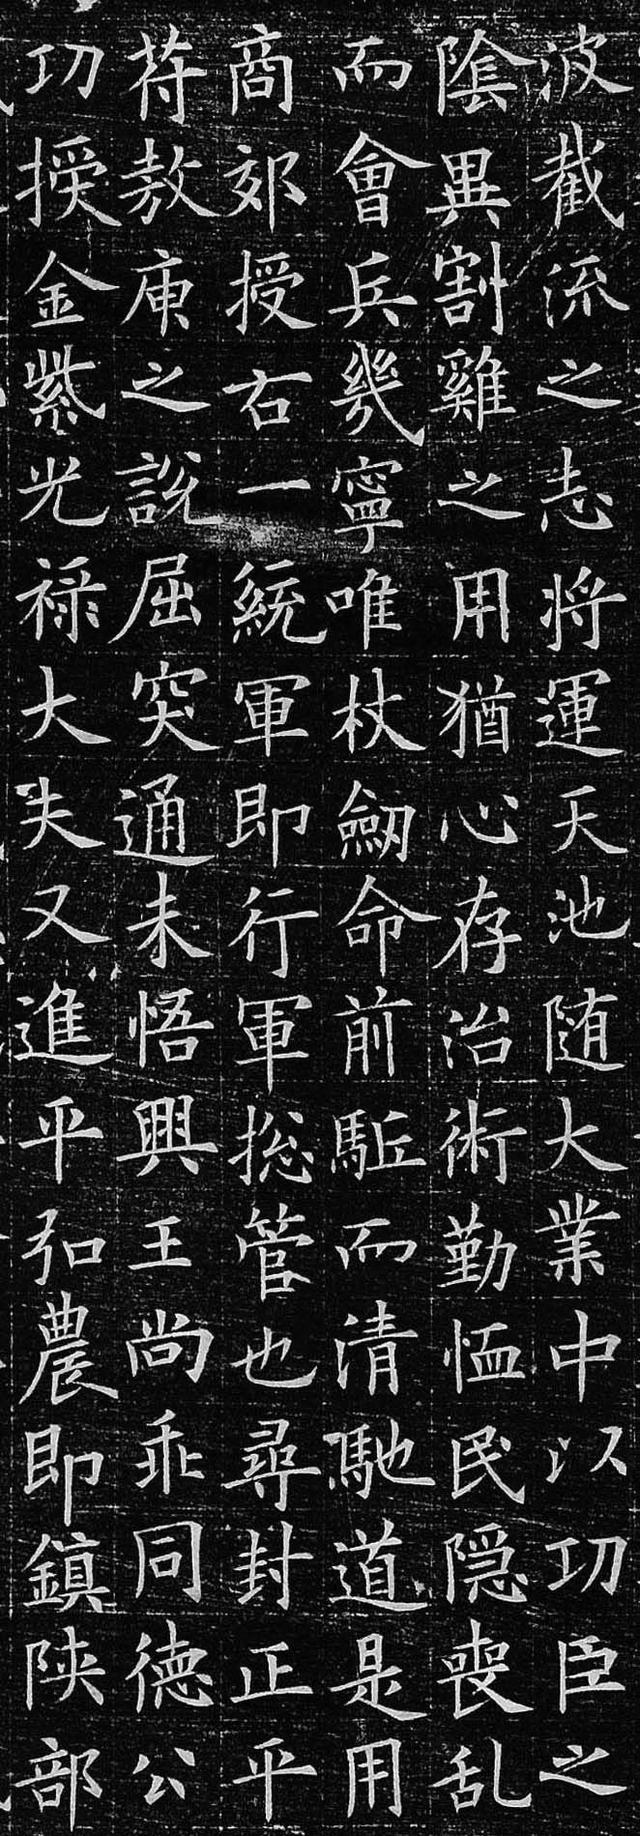 波截流之志将運天池随大業中以功臣之
陰異割雞之用猶心存治術勤恤民隐喪乱
而會兵幾寧唯杖劒命前駈而清馳道是用
商郊授右一統軍即行軍捴管也尋封正平
苻敖庾之說屈突通未悟興王尚乖同德公
功授金紫光禄大夫又進平弘農即鎮陝部